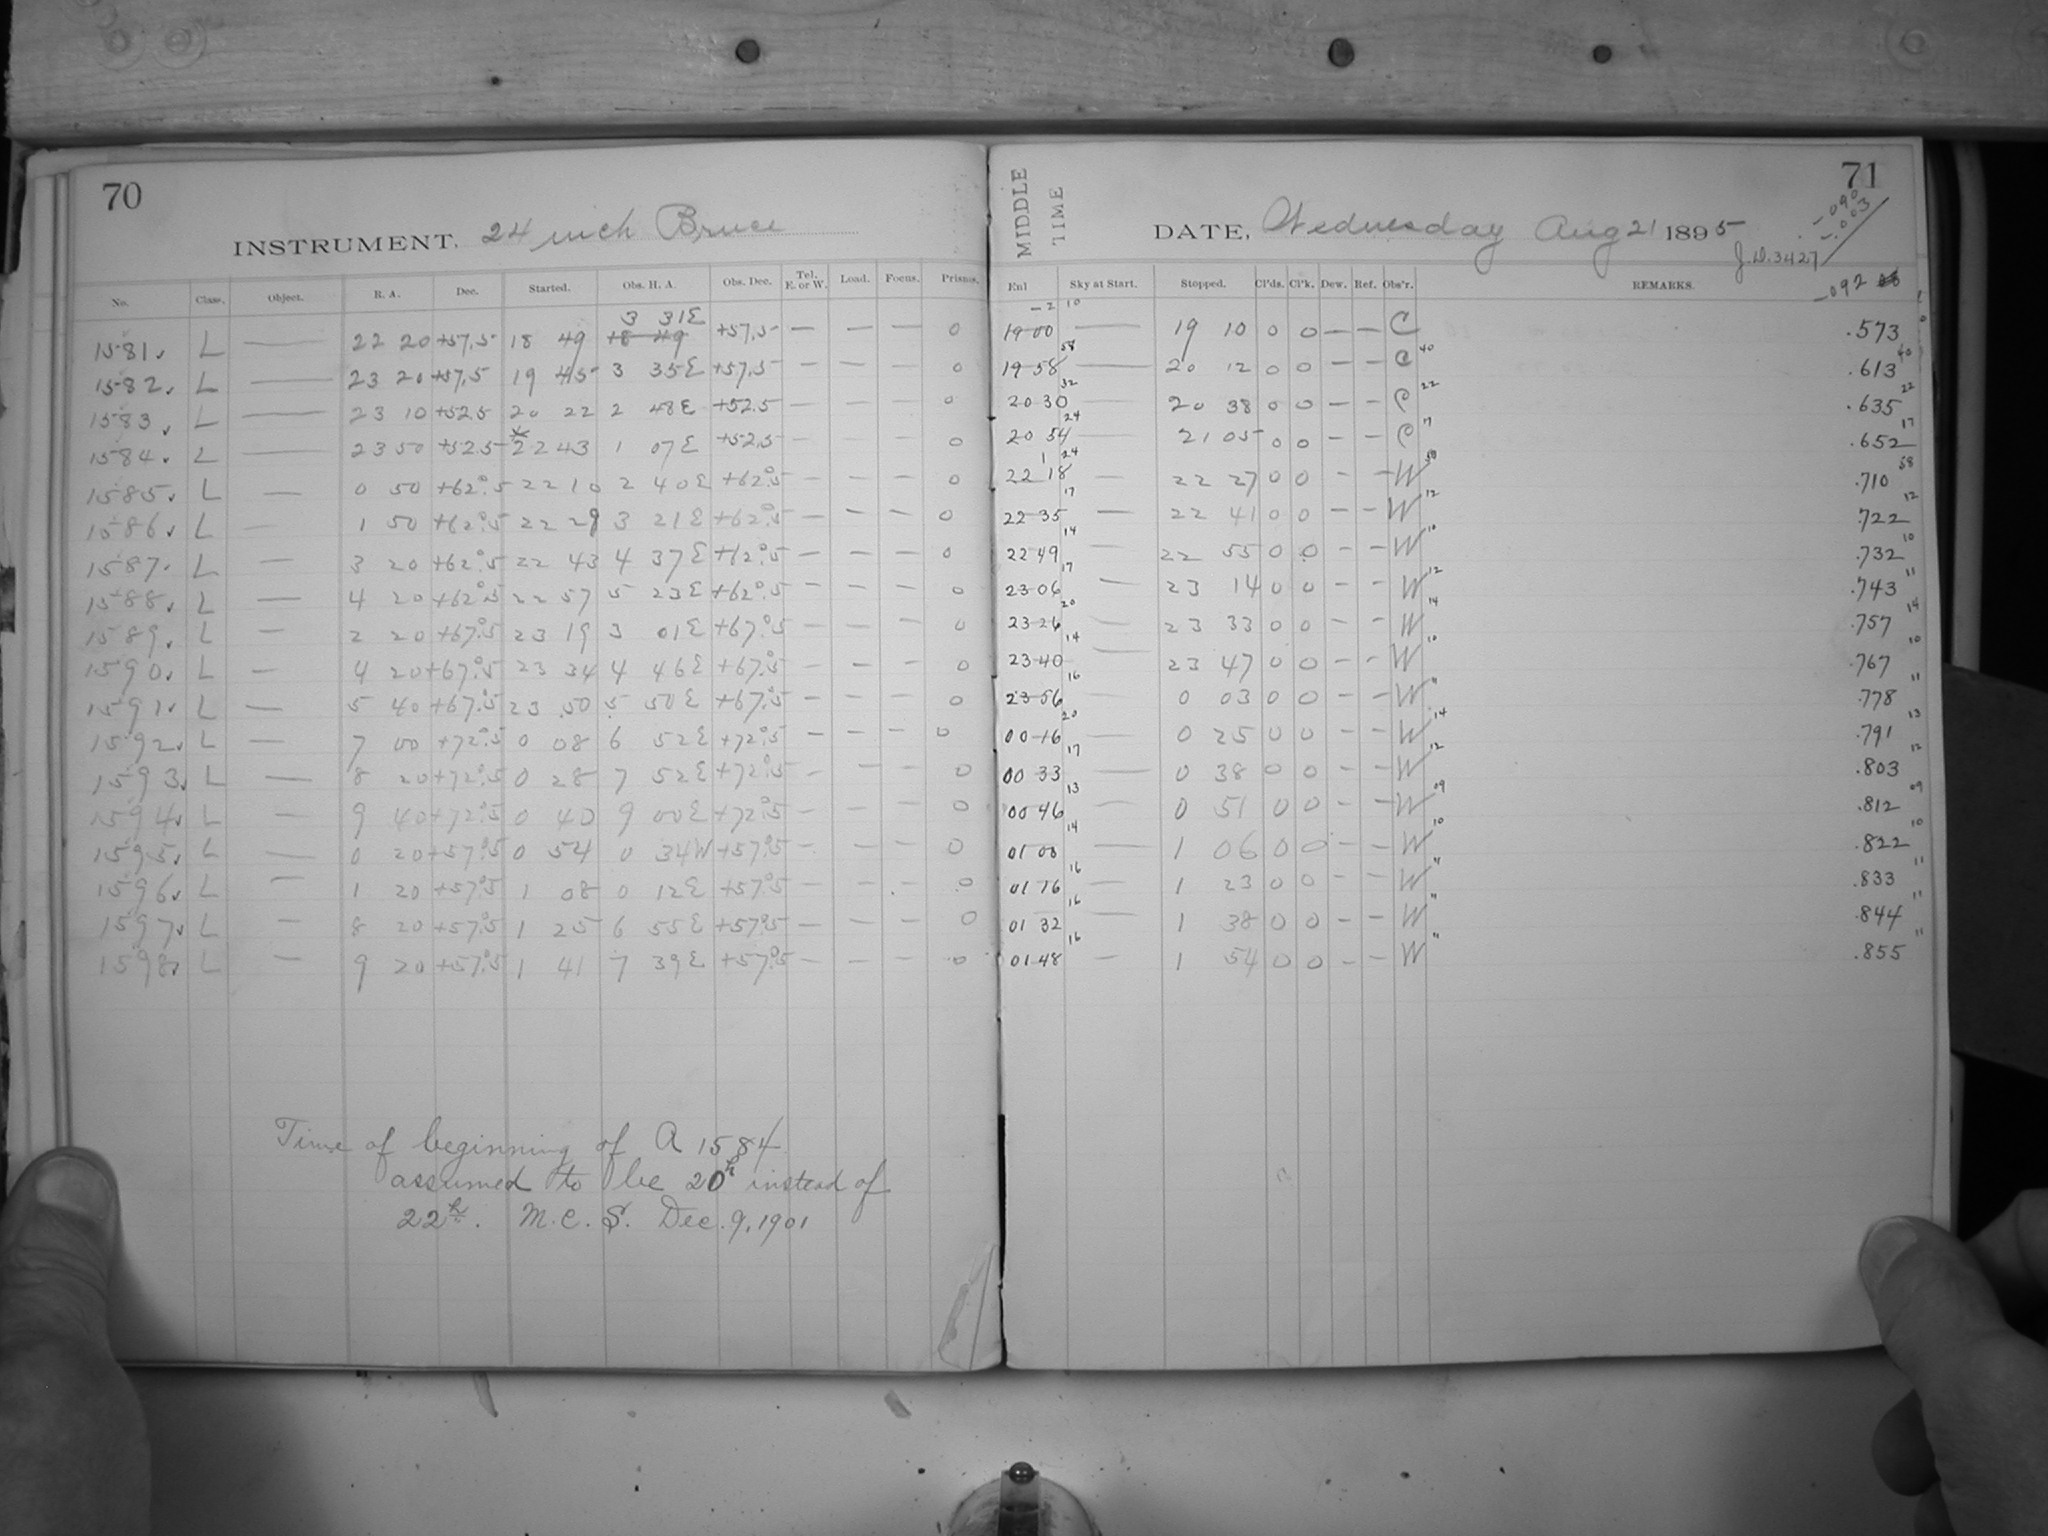 70
INSTRUMENT, 24 inch Bruce
No. Class. Object. R. A. Dec. Started. Obs. H. A. Obs. Dec. Tel. E. or W. Load. Focus. Prisms.
3 31E
1581. L — 22 20 +57.5 18 49 18 49 +57.5 — — — 0
1582. L — 23 20 +57.5 19 45 3 35E +57.5 — — — 0
1583. L — 23 10 +52.5 20 22 2 48E +52.5 — — — 0
1584. L — 23 50 +52.5 *22 43 1 07E +52.5 — — — 0
1585. L — 0 50 +62°.5 22 10 2 40E +62°.5 — — — 0
1586. L — 1 50 +62°.5 22 29 3 21E +62°.5 — — — 0
1587. L — 3 20 +62°.5 22 43 4 37E +62°.5 — — — 0
1588. L — 4 20 +62°.5 22 57 5 23E +62°.5 — — — 0
1589. L — 2 20 +67°.5 23 19 3 01E +67°.5 — — — 0
1590. L — 4 20 +67°.5 23 34 4 46E +67°.5 — — — 0
1591. L — 5 40 +67°.5 23 50 5 50E +67°.5 — — — 0
1592. L — 7 00 +72°.5 0 08 6 52E +72°.5 — — — 0
1593. L — 8 20 +72°.5 0 28 7 52E +72°.5 — — — 0
1594. L — 9 40 +72°.5 0 40 9 00E +72°.5 — — — 0
1595. L — 0 20 +57°.5 0 54 0 34W +57°.5 — — — 0
1596. L — 1 20 +57°.5 1 08 0 12E +57°.5 — — — 0
1597. L — 8 20 +57°.5 1 25 6 55E +57°.5 — — — 0
1598. L — 9 20 +57°.5 1 41 7 39E +57°.5 — — — 0
Time of beginning of A 1584
assumed to be 20h instead of
22h. M.C.S. Dec. 9, 1901
71
MIDDLE
TIME
DATE, Wednesday Aug 21 1895
-.090
-.003
J.D. 3427
-.092
Sky at Start. Stopped. Cl'ds. Cl'k. Dew. Ref. Obs'r. REMARKS.
-2 10
19 00 — 19 10 0 0 — — C .573
58
19 58 — 20 12 0 0 — — C 40 .613 40
32
20 30 — 20 38 0 0 — — C 22 .635 22
24
20 54 — 21 05 0 0 — — C 17 .652 17
1 24
22 18 — 22 27 0 0 — — W 58 .710 58
17
22 35 — 22 41 0 0 — — W 12 .722 12
14
22 49 — 22 55 0 0 — — W 10 .732 10
17
23 06 — 23 14 0 0 — — W 12 .743 11
20
23 26 — 23 33 0 0 — — W 14 .757 14
14
23 40 — 23 47 0 0 — — W 10 .767 10
16
23 56 — 0 03 0 0 — — W 11 .778 11
20
00 16 — 0 25 0 0 — — W 14 .791 13
17
00 33 — 0 38 0 0 — — W 12 .803 12
13
00 46 — 0 51 0 0 — — W 09 .812 09
14
01 00 — 1 06 0 0 — — W 10 .822 10
16
01 16 — 1 23 0 0 — — W 11 .833 11
16
01 32 — 1 38 0 0 — — W 11 .844 11
16
01 48 — 1 54 0 0 — — W 11 .855 11